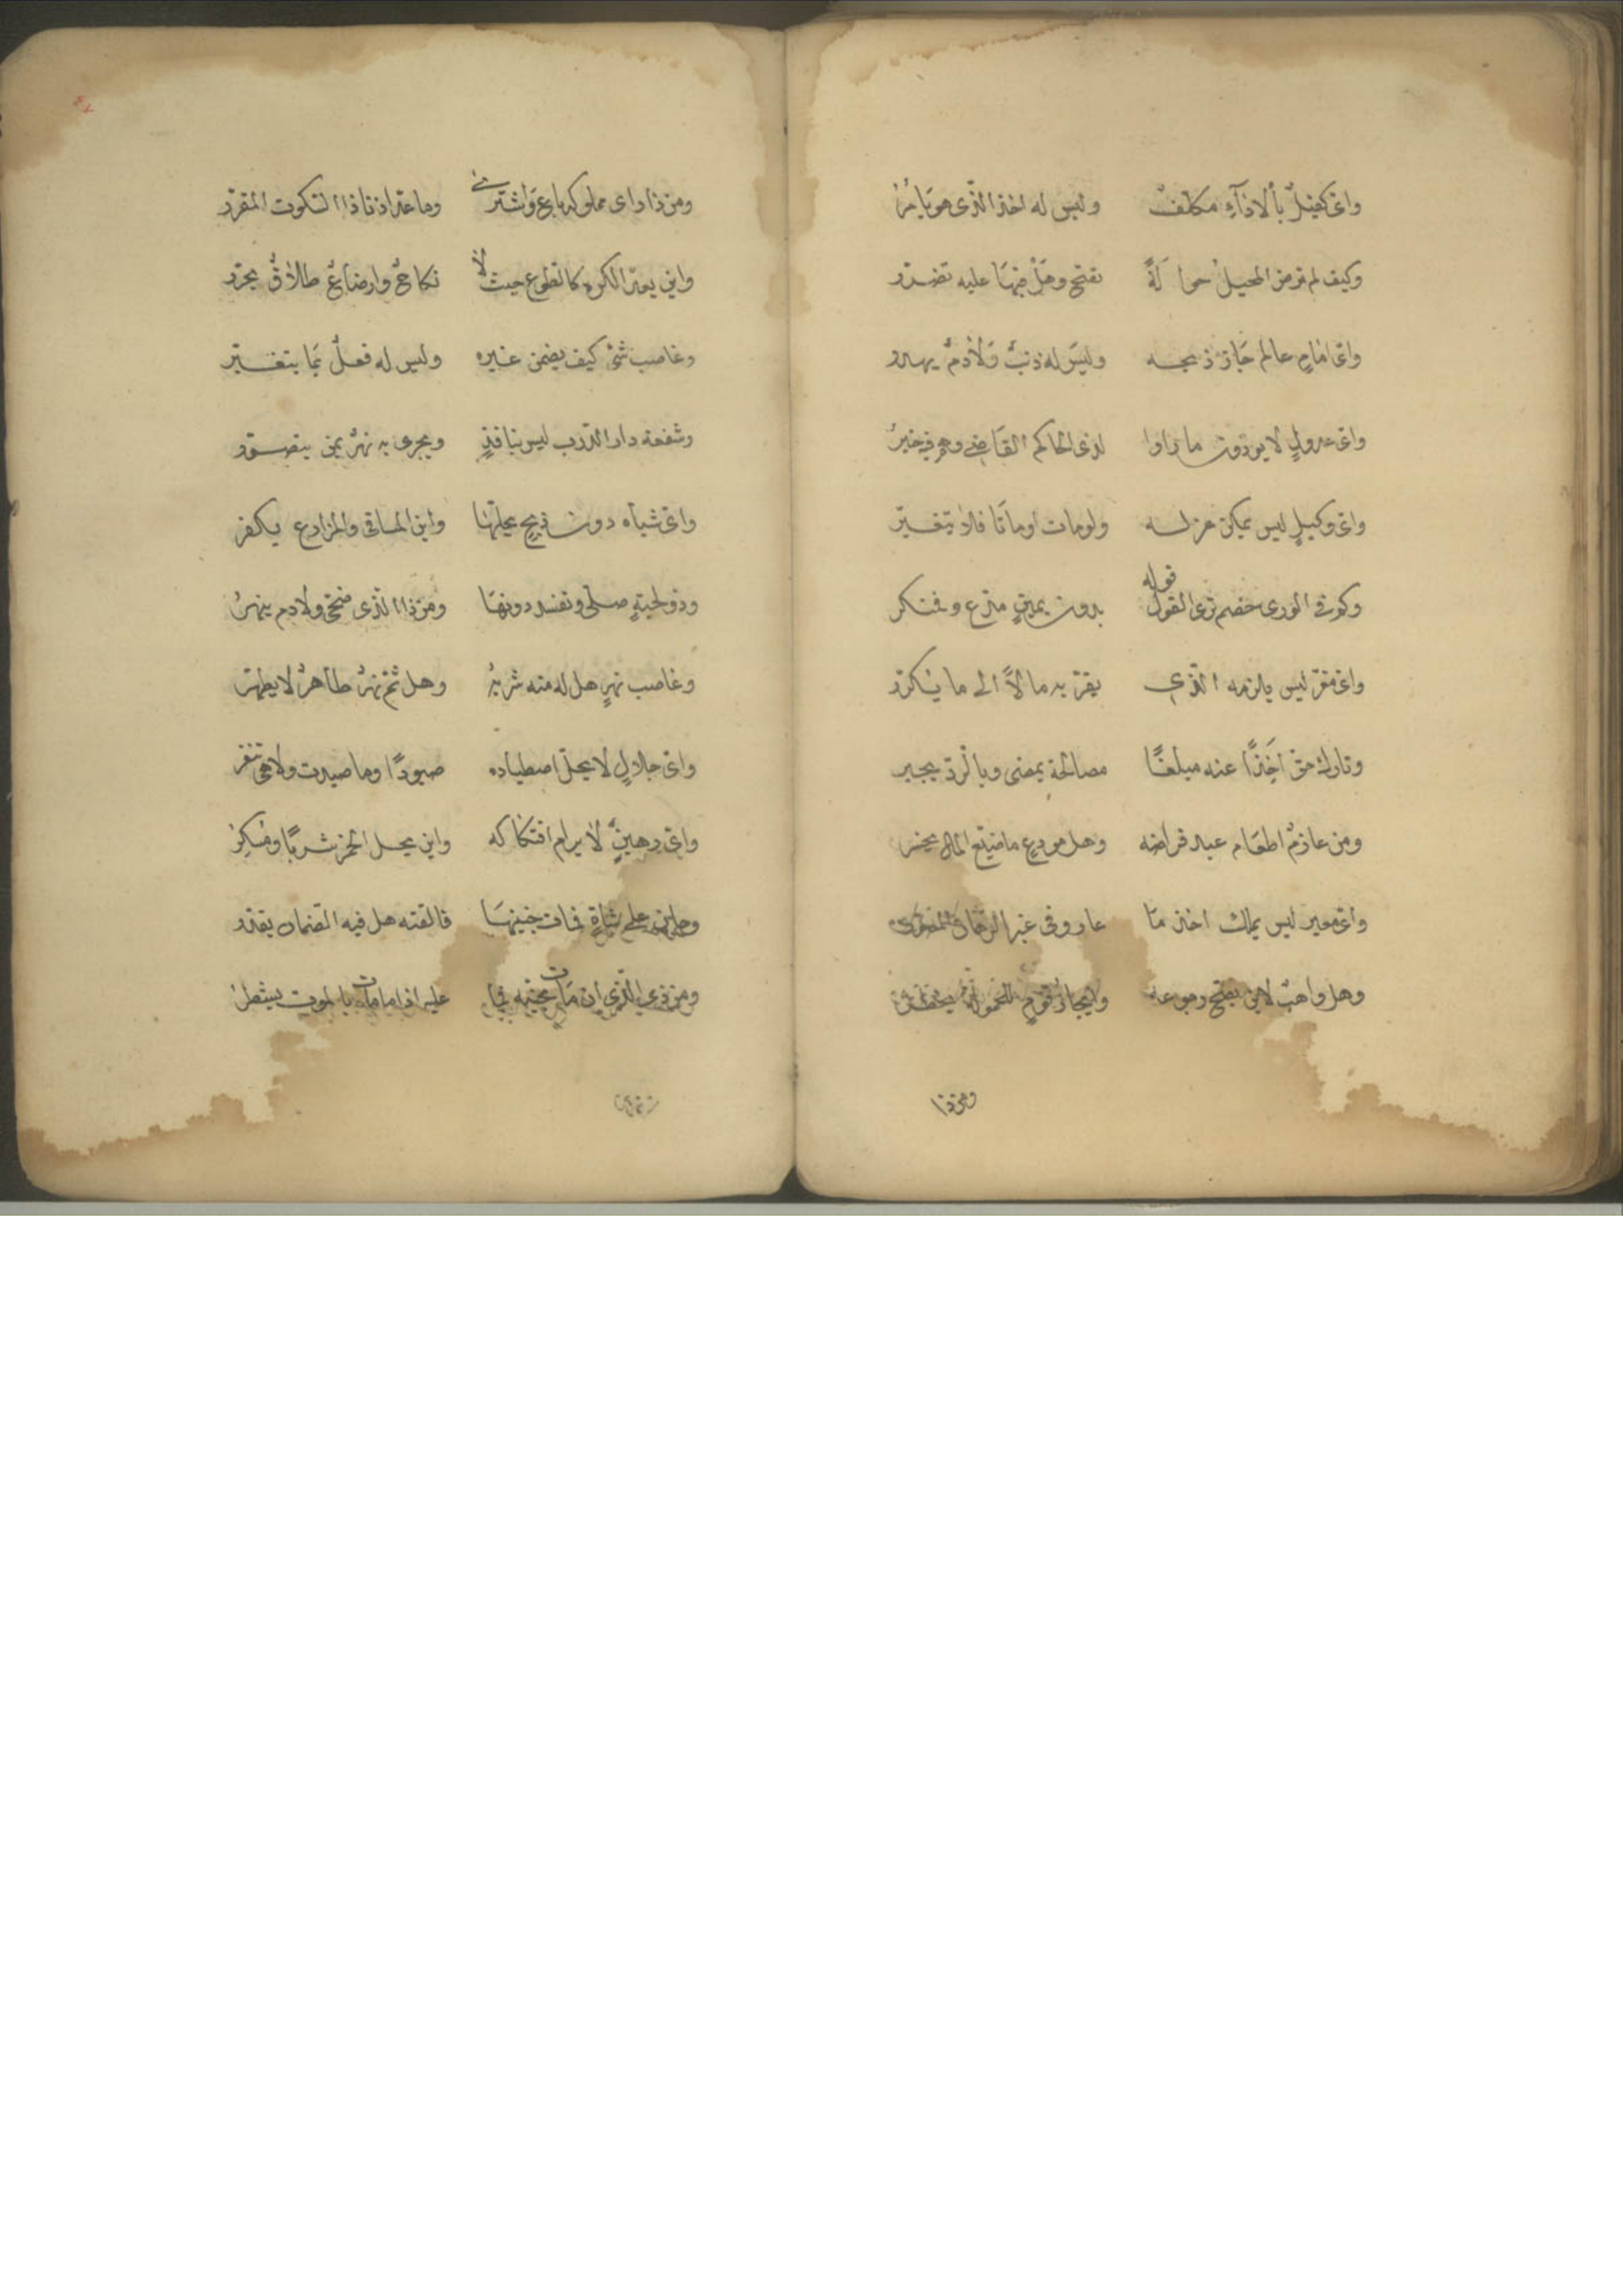 واى كفيل بالاداء مكلف وليس له اخذ الذى هو يامر
وكيف لم تزمن المحيل حوالة تصح وهل فيها عليه تضرر
واى امام عالم جاز ذبحه وليس له ذنب ولا دم يهدر
واى عدول لا يودون ما راوا لدى الحاكم القاضى وهم فى خير
واى وكيل ليس يمكن عزله ولو مات او ماتا فلا يتغير
وكم فى الورى خصم ترى القول قوله بدون يمين مدع ومنكر
واى مقر ليس يلزمه الذى يقر به مالا الى ما يكرر
وتارك حق اخذا عنه مبلغا مصالحة يمضى وبالرد يجبر
ومن عازم اطعام عبد قراضه وهل مودع ما ضيع المال يخسر
واى معير ليس يملك اخذ ما اعار وفى غير الرهان
وهل واهب لابن يصح رجوعه وايجار قوم للحمولة
ومن ذا
ومن ذا راى مملوكه باع واشترى وما عد اذنا ذا السكوت المقرر
واين يعد الكره كالطوع حيث لا نكاح وارضاع طلاق يحرر
وغاصب شئ كيف يضمن غيره وليس له فعل بما يتغير
وشفعة دار الدرب ليس بنافذ ويجرى به نهر بمن يتصور
واى شياه دون ذبح يحلها واين المساقى والمزارع يكفر
وذو لحية صلى وتفسد دونها ومن ذا الذى ضحى ولا دم ينهر
وغاصب نهر هل له منه شربة وهل ثم نهر طاهر لا يطهر
واى حلال لا يحل اصطياده صيودا وما صيدت ولا هى تنفر
واى رهين لا يرام افتكاكه واين يحل الخمر شربا ومسكر
وجان على شاة فمات جنينها فالقته هل فيه الضمان يقدر
ومن ذى الذى ان مات مجنيه فما عليه اذا ما مات بالموت يشطر